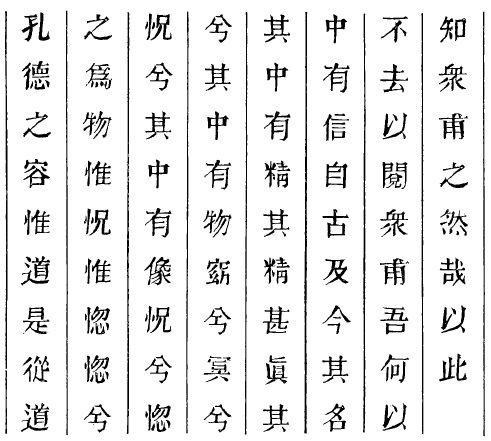 孔德之容惟道是從道
之爲物惟怳惟惚惚兮
怳兮其中有像怳兮惚
兮其中有物窈兮冥兮
其中有精其精甚眞其
中有信自古及今其名
不去以閱衆甫吾何以
知衆甫之然哉以此